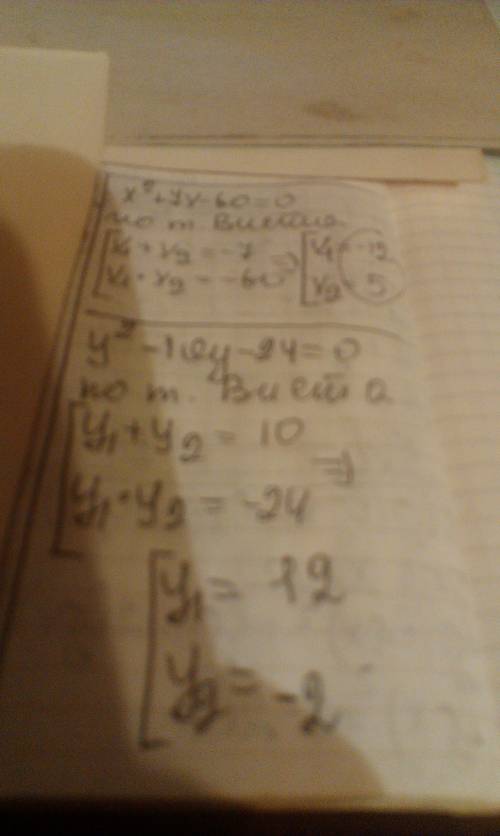 x² + 7x - 60 = 0
по т. Виета
[x₁ + x₂ = -7 ⇒ [x₁ = -12
x₁ · x₂ = -60 x₂ = 5
y² - 10y - 24 = 0
по т. Виета
[y₁ + y₂ = 10 ⇒
y₁ · y₂ = -24
[y₁ = 12
y₂ = -2